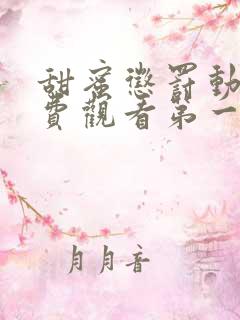 甜蜜懲罰動
費觀看第一
月月音